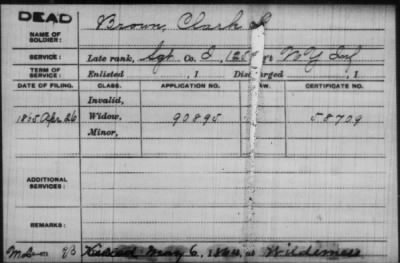 DEAD
NAME OF SOLDIER: Brown, Clark S
SERVICE: Late rank, Sgt Co. E, 126 Rg't N Y Inf
TERM OF SERVICE: Enlisted , 1 Discharged , 1
DATE OF FILING. CLASS. APPLICATION NO. LAW. CERTIFICATE NO.
Invalid,
1865 Apr 26 Widow, 90895 58709
Minor,
ADDITIONAL SERVICES:
REMARKS:
Killed May 6, at Wilderness